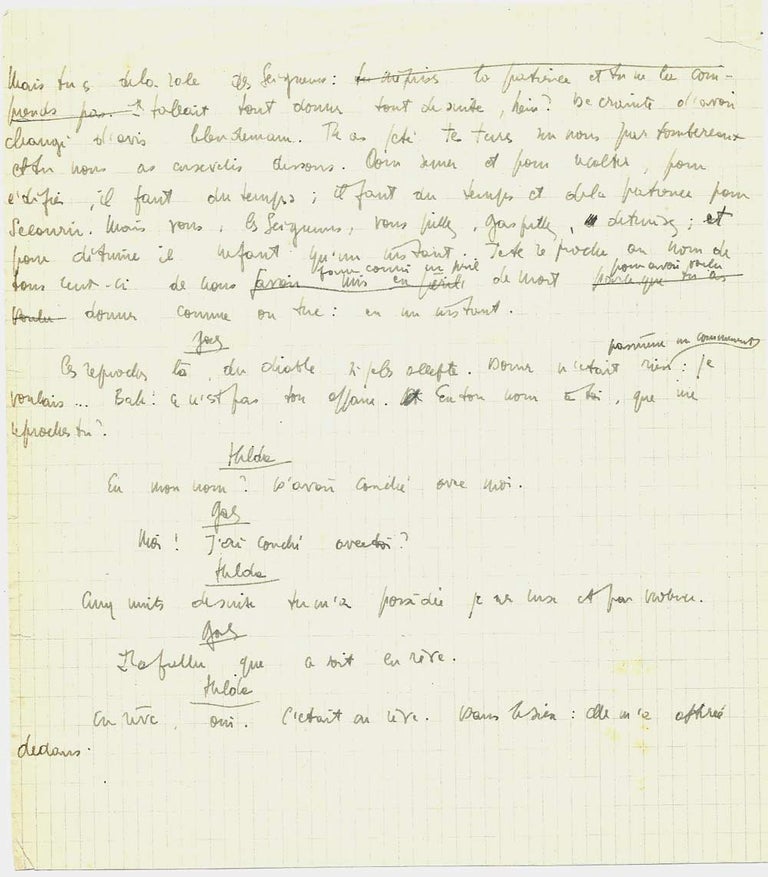 Mais tu es de la race des Seigneurs : tu méprises la patience et tu ne la com-
prends pas. Il fallait tout donner tout de suite, hein ? De crainte d'avoir
changé d'avis le lendemain. Tu as jeté tes terres sur nous par tombereaux
et tu nous as ensevelis dessous. Pour semer et pour récolter, pour
édifier, il faut du temps ; il faut du temps et de la patience pour
secourir. Mais vous, les Seigneurs, vous pillez, gaspillez, détruisez ; et
pour détruire il ne faut qu'un instant. Je te reproche au nom de
tous ceux-ci de nous avoir mis en péril de mort parce que tu as
voulu donner comme on tue : en un instant.
pour avoir voulu
Goetz
Ces reproches là, du diable si je les accepte. Donner n'était rien : je
voulais... Bah : ça n'est pas ton affaire. Et En ton nom à toi, que me
reproches-tu ?
Hilda
En mon nom ? D'avoir couché avec moi.
Goetz
Moi ! J'ai couché avec toi ?
Hilda
Cinq nuits de suite tu m'as possédée par ruse et par violence.
Goetz
Il a fallu que ça soit en rêve.
Hilda
En rêve, oui. C'était en rêve. Dans le sien : elle m'a attirée
dedans.